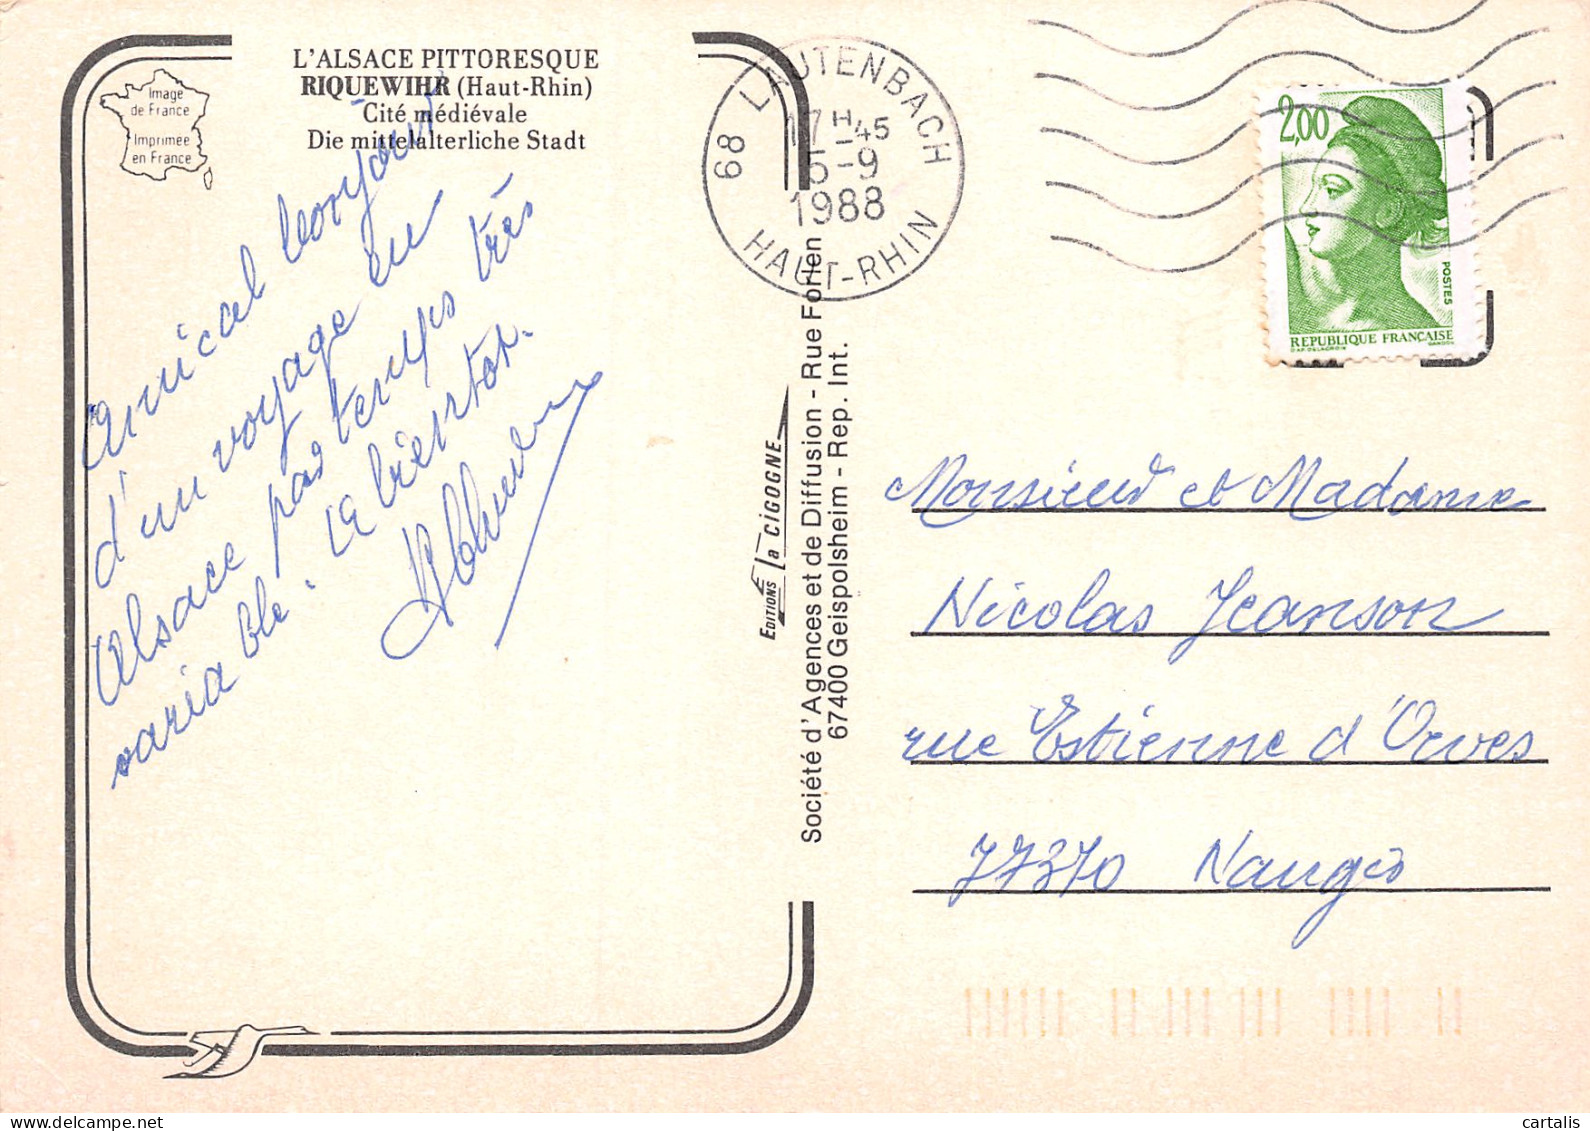 L'ALSACE PITTORESQUE
RIQUEWIHR (Haut-Rhin)
Cité médiévale
Die mittelalterliche Stadt
Image
de France
Imprimée
en France
Amical bonjour
d'un voyage en
Alsace par temps très
variable. A bientôt.
EDITIONS La CIGOGNE
Société d'Agences et de Diffusion - Rue Forlen
67400 Geispolsheim - Rep. Int.
68 LAUTENBACH
17H-45
5-9
1988
HAUT-RHIN
2,00
POSTES
REPUBLIQUE FRANÇAISE
D'AP. DELACROIX GANDON
Monsieur et Madame
Nicolas Jeanson
rue Estienne d'Orves
77370 Nangis
cartalis